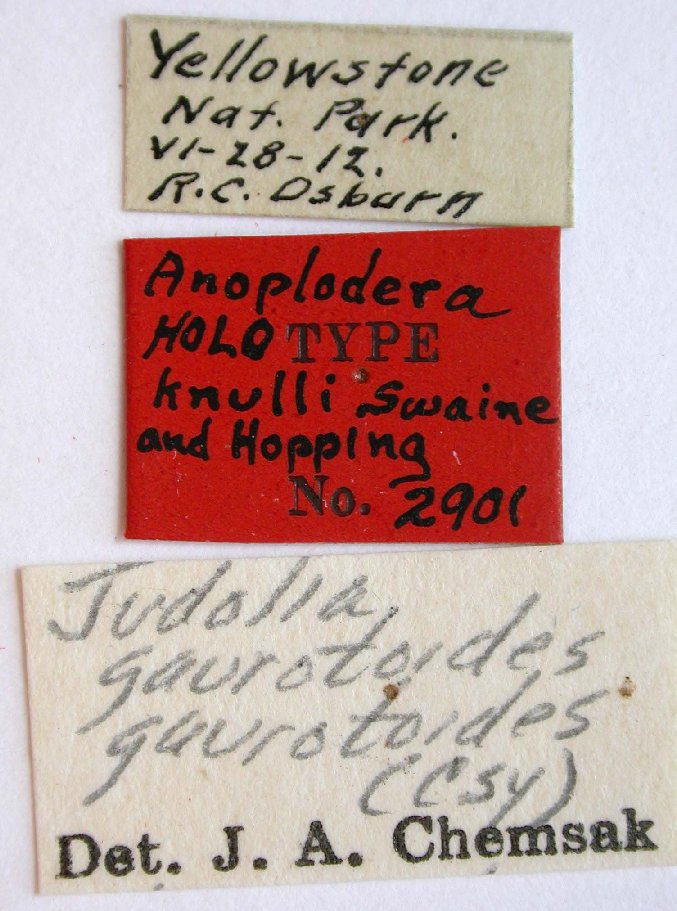 Yellowstone
Nat. Park.
VI-28-12.
R.C. Osburn
Anoplodera
HOLOTYPE
knulli Swaine
and Hopping
No. 2901
Judolia
gaurotoides
gaurotoides
(Csy)
Det. J. A. Chemsak